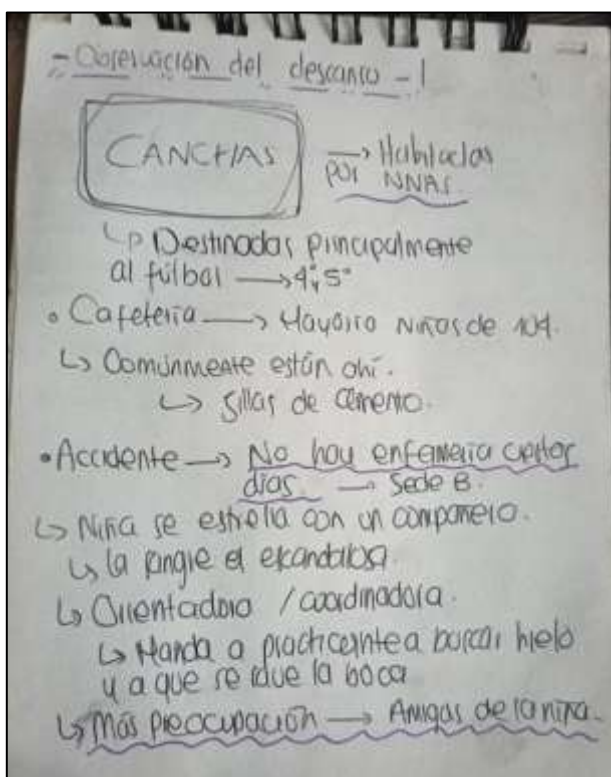 - Observación del descanso - 1
CANCHAS → Habitadas
por NNAS.
↳ Destinadas principalmente
al fútbol → 4°, 5°
• Cafetería → Mayoría Niños de 104.
↳ Comúnmente están ahí.
↳ Sillas de Cemento.
• Accidente → No hay enfermería ciertos
días → Sede B.
↳ Niña se estrella con un compañero.
↳ la sangre es escandalosa
↳ Orientadora / coordinadora.
↳ Manda a practicante a buscar hielo
y a que se lave la boca
↳ Más preocupación → Amigas de la niña.